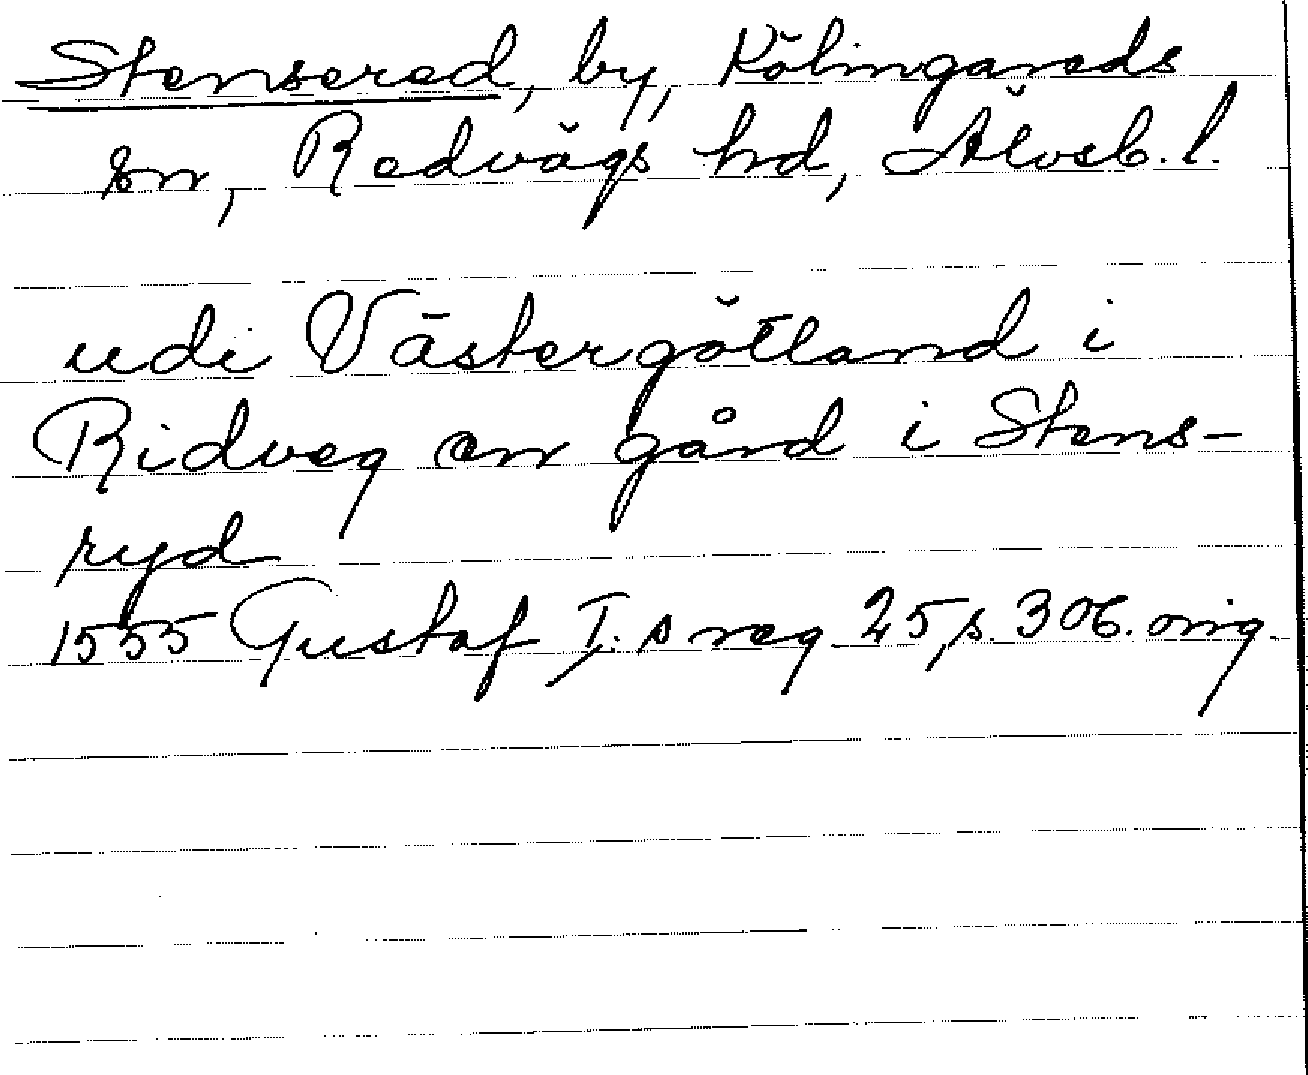 Stensered, by, Kölingareds
sn, Redvägs hd, Älvsb. l.
udi Västergötland i
Ridveg en gård i Stens-
ryd
1555 Gustaf I:s reg 25, s. 306. orig.